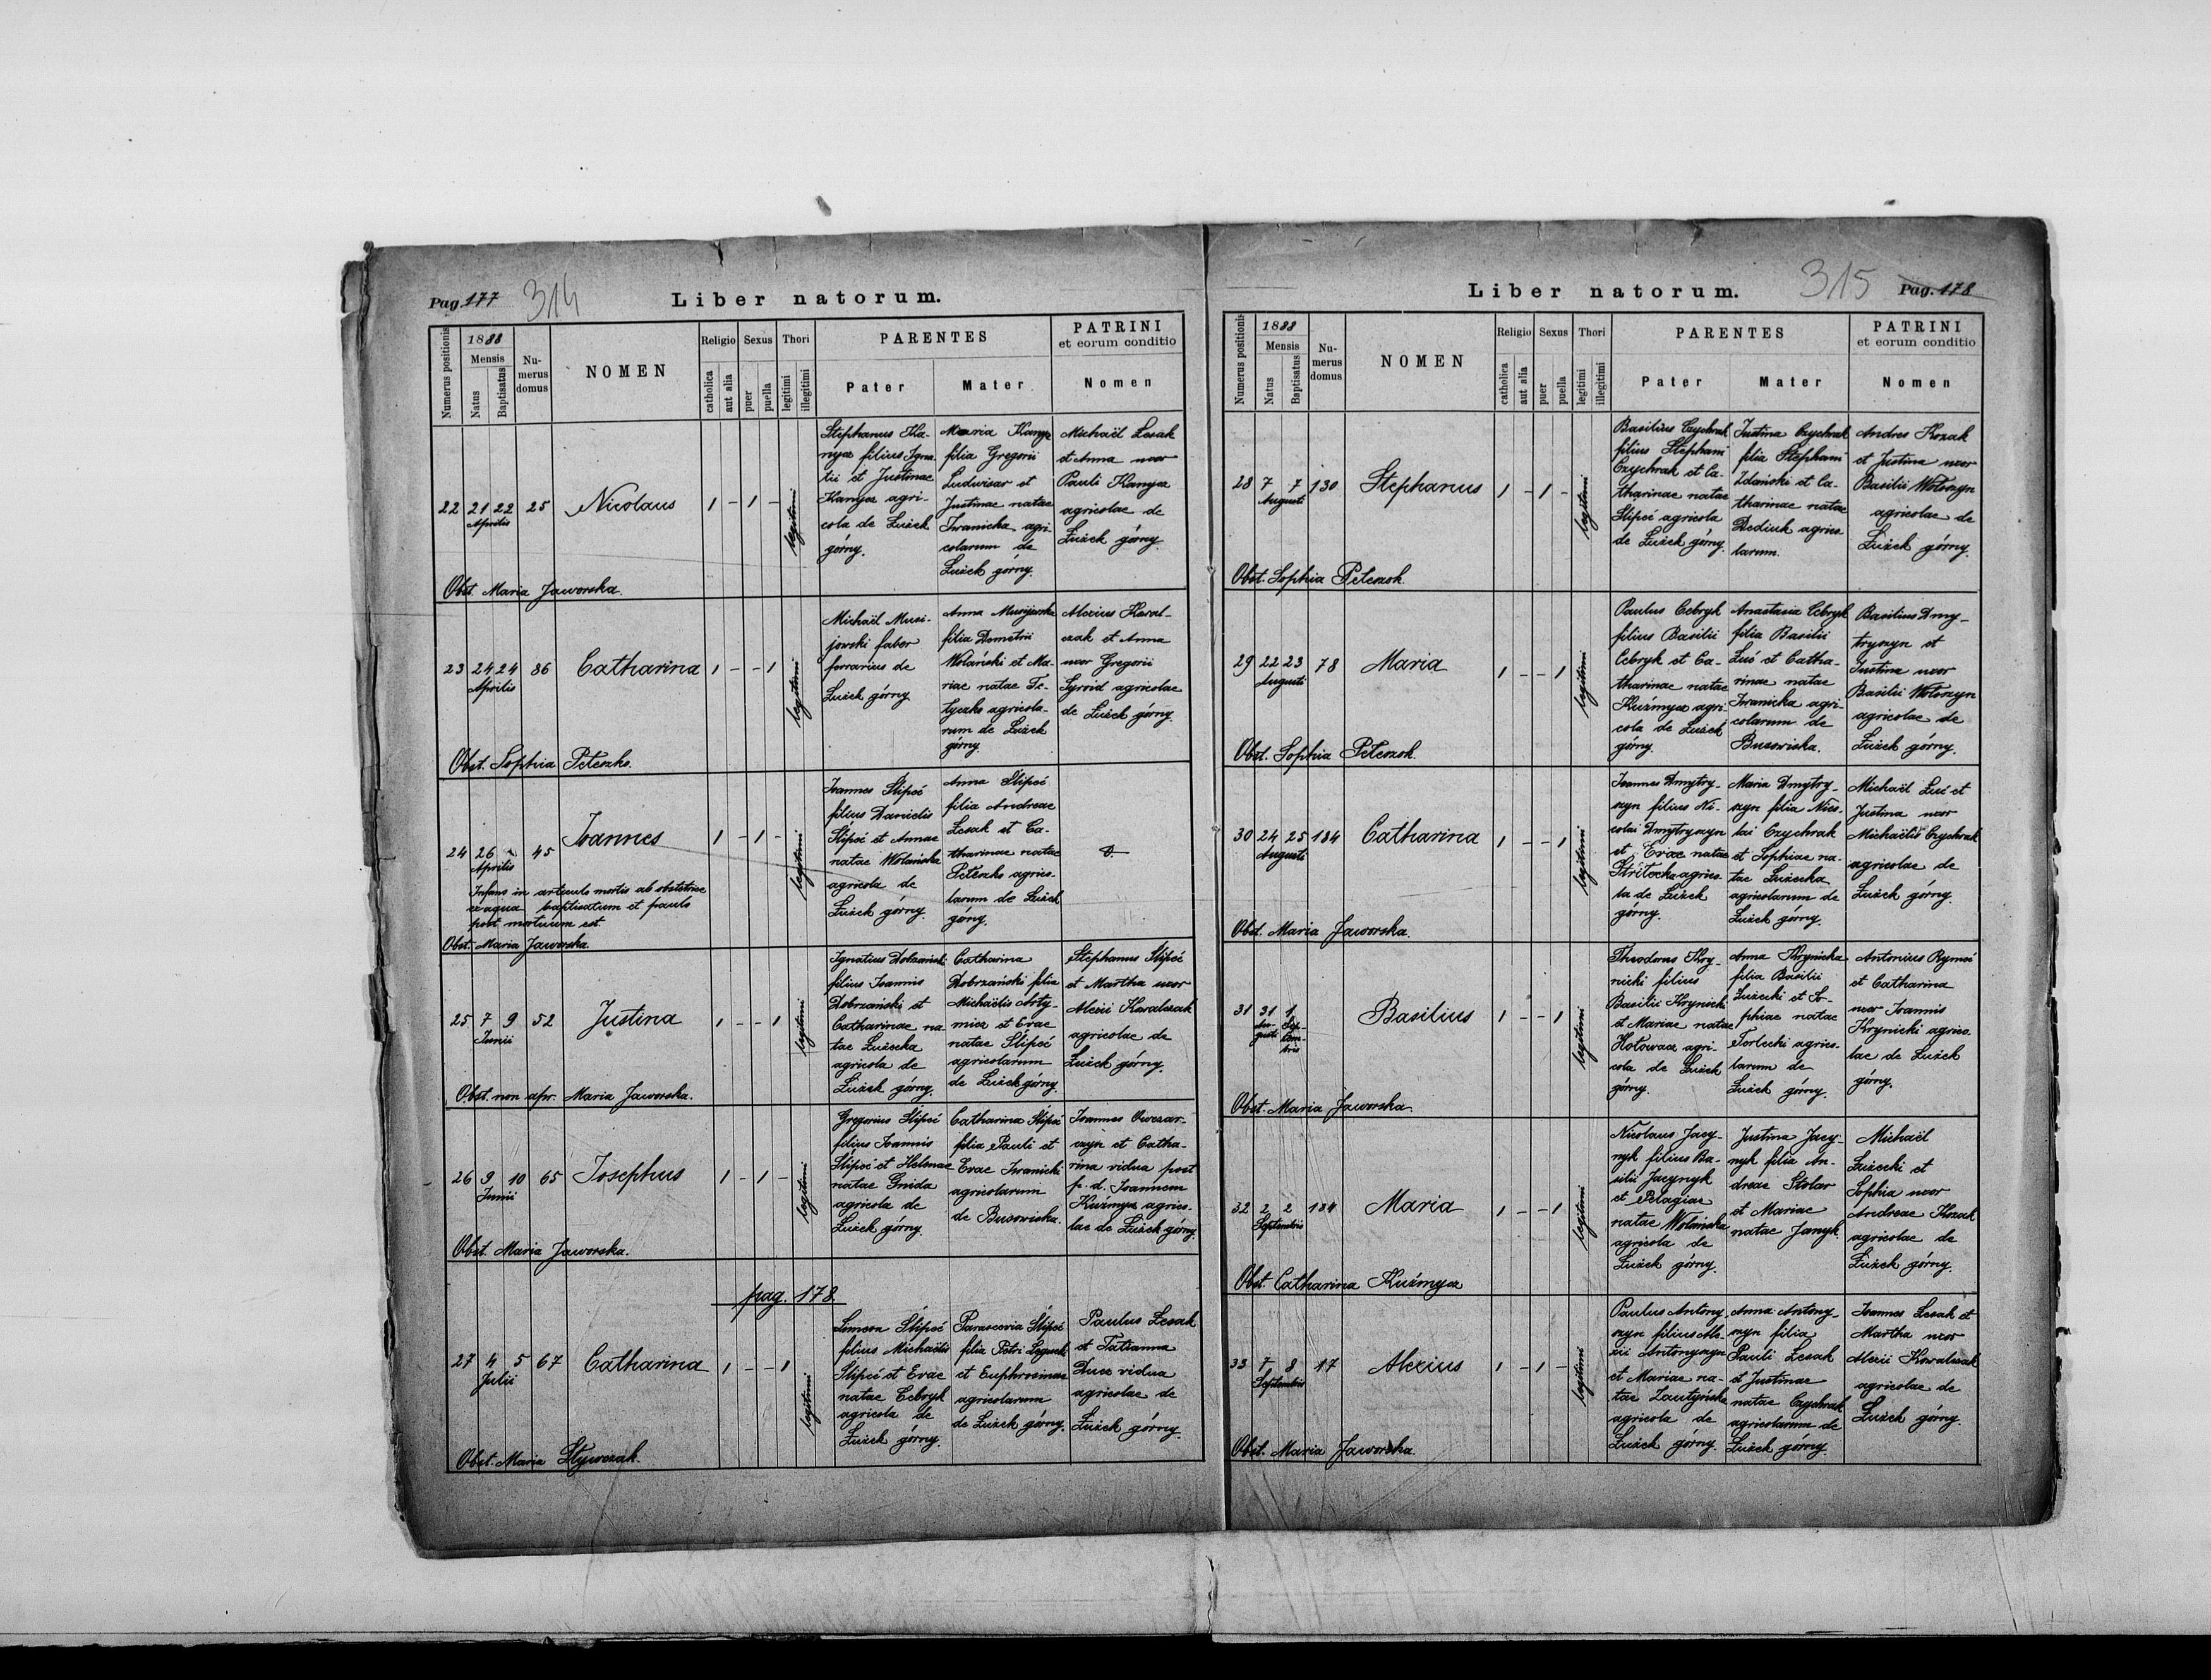 Pag. 177
314
Liber natorum.
Numerus positionis
1888
Mensis
Natus
Baptisatus
Nu-
merus
domus
NOMEN
Religio
catholica
aut alia
Sexus
puer
puella
Thori
legitimi
illegitimi
PARENTES
Pater
Mater
PATRINI
et eorum conditio
Nomen
22 21 22 25 Nicolaus 1 - 1 - legitimi
Aprilis
Stephanus Ka-
nycz filius Igna-
tii et Justinae
Kanycz agri-
cola de Łużek
górny.
Maria Kanycz
filia Gregorii
Ludwisar et
Justinae natae
Iwanicka agri-
colarum de
Łużek górny.
Michaël Lesak
et Anna uxor
Pauli Kanycz
agricolae de
Łużek górny.
Obst. Maria Jaworska.
23 24 24 86 Catharina 1 - - 1 legitimi
Aprilis
Michaël Musi-
jowski faber
ferrarius de
Łużek górny
Anna Musijowska
filia Demetrii
Wolański et Ma-
riae natae Te-
tyczko agricola-
rum de Łużek
górny.
Alexius Kowal-
czak et Anna
uxor Gregorii
Syroid agricolae
de Łużek górny.
Obst. Sophia Peteszko.
24 26 45 Joannes 1 - 1 - legitimi
Aprilis
Infans in articulo mortis ab obstetrice
ex aqua baptisatum et paulo
post mortuum est.
Joannes Slipeć
filius Danielis
Slipeć et Annae
natae Wolańska
agricola de
Łużek górny.
Anna Slipeć
filia Andreae
Lesak et Ca-
tharinae natae
Peteszko agrico-
larum de Łużek
górny.
Obst. Maria Jaworska.
25 7 9 52 Justina 1 - - 1 legitimi
Junii
Ignatius Dobrzański
filius Joannis
Dobrzański et
Catharinae na
tae Łużecka
agricola de
Łużek górny.
Catharina
Dobrzański filia
Michaëlis Arty-
micz et Evae
natae Slipeć
agricolarum
de Łużek górny.
Stephanus Slipeć
et Martha uxor
Alexii Kowalczak
agricolae de
Łużek górny.
Obst. non apr. Maria Jaworska.
26 9 10 65 Josephus 1 - 1 - legitimi
Junii
Gregorius Slipeć
filius Joannis
Slipeć et Helenae
natae Gnida
agricola de
Łużek górny.
Catharina Slipeć
filia Pauli et
Evae Iwanicki
agricolarum
de Busowiska.
Joannes Owczar-
czyn et Catha-
rina vidua post
p. d. Joannem
Kuźmycz agrico-
lae de Łużek górny.
Obst. Maria Jaworska.
pag. 178.
27 4 5 67 Catharina 1 - - 1 legitimi
Julii
Simeon Slipeć
filius Michaëlis
Slipeć et Evae
natae Cebryk
agricola de
Łużek górny.
Parascevia Slipeć
filia Petri
et Euphrosinae
agricolarum
de Łużek górny.
Paulus Lesak
et Tatianna
Ducz vidua
agricolae de
Łużek górny.
Obst. Maria Stywczak.
Liber natorum.
315
Pag. 178
Numerus positionis
1888
Mensis
Natus
Baptisatus
Nu-
merus
domus
NOMEN
Religio
catholica
aut alia
Sexus
puer
puella
Thori
legitimi
illegitimi
PARENTES
Pater
Mater
PATRINI
et eorum conditio
Nomen
28 7 7 130 Stephanus 1 - 1 - legitimi
Augusti
Basilius Czychrak
filius Stephani
Czychrak et Ca-
tharinae natae
Slipeć agricola
de Łużek górny.
Justina Czychrak
filia Stephani
Zdański et Ca-
tharinae natae
Dediuk agrico
larum.
Andres Kozak
et Justina uxor
Basilii Wołoszyn
agricolae de
Łużek górny.
Obst. Sophia Peteszok.
29 22 23 78 Maria 1 - - 1 legitimi
Augusti
Paulus Cebryk
filius Basilii
Cebryk et Ca-
tharinae natae
Kuźmycz agri-
cola de Łużek
górny.
Anastasia Cebryk
filia Basilii
Luć et Catha-
rinae natae
Iwanicka agri-
colarum de
Busowiska.
Basilius Dmy-
tryszyn et
Justina uxor
Basilii Wołoszyn
agricolae de
Łużek górny.
Obst. Sophia Peteszok.
30 24 25 184 Catharina 1 - - 1 legitimi
Augusti
Joannes Dmytry-
szyn filius Ni-
colai Dmytryszyn
et Evae natae
agrico-
la de Łużek
górny.
Maria Dmytry-
szyn filia Nico-
lai Czychrak
et Sophiae na-
tae Łużecka
agricolarum de
Łużek górny.
Michaël Luć et
Justina uxor
Michaëlis Czychrak
agricolae de
Łużek górny.
Obst. Maria Jaworska.
31 31 1 Basilius 1 - - 1 legitimi
Au-
gusti
Sep-
tem-
bris
Theodorus Kry-
nicki filius
Basilii Krynicki
et Mariae natae
Hołowacz agri-
cola de Łużek
górny.
Anna Krynicka
filia Basilii
Łużecki et So-
phiae natae
Torlecki agrico-
larum de
Łużek górny.
Antonius Rymeć
et Catharina
uxor Joannis
Krynicki agrico-
lae de Łużek
górny.
Obst. Maria Jaworska.
32 2 2 184 Maria 1 - - 1 legitimi
Septembris
Nicolaus Jacy-
nyk filius Ba-
silii Jacynyk
et Pelagiae
natae Wolańska
agricola de
Łużek górny.
Justina Jacy-
nyk filia An-
dreae Stolar
et Mariae
natae Janyk.
Michaël
Łużecki et
Sophia uxor
Andreae Kozak
agricolae de
Łużek górny.
Obst. Catharina Kuźmycz
33 7 8 17 Alexius 1 - 1 - legitimi
Septembris
Paulus Antony-
szyn filius Ale-
xii Antonyszyn
et Mariae na-
tae
agricola de
Łużek górny.
Anna Antony-
szyn filia
Pauli Lesak
et Justinae
natae Czychrak
agricolarum de
Łużek górny.
Joannes Lesak et
Martha uxor
Alexii Kowalczak
agricolae de
Łużek górny.
Obst. Maria Jaworska.